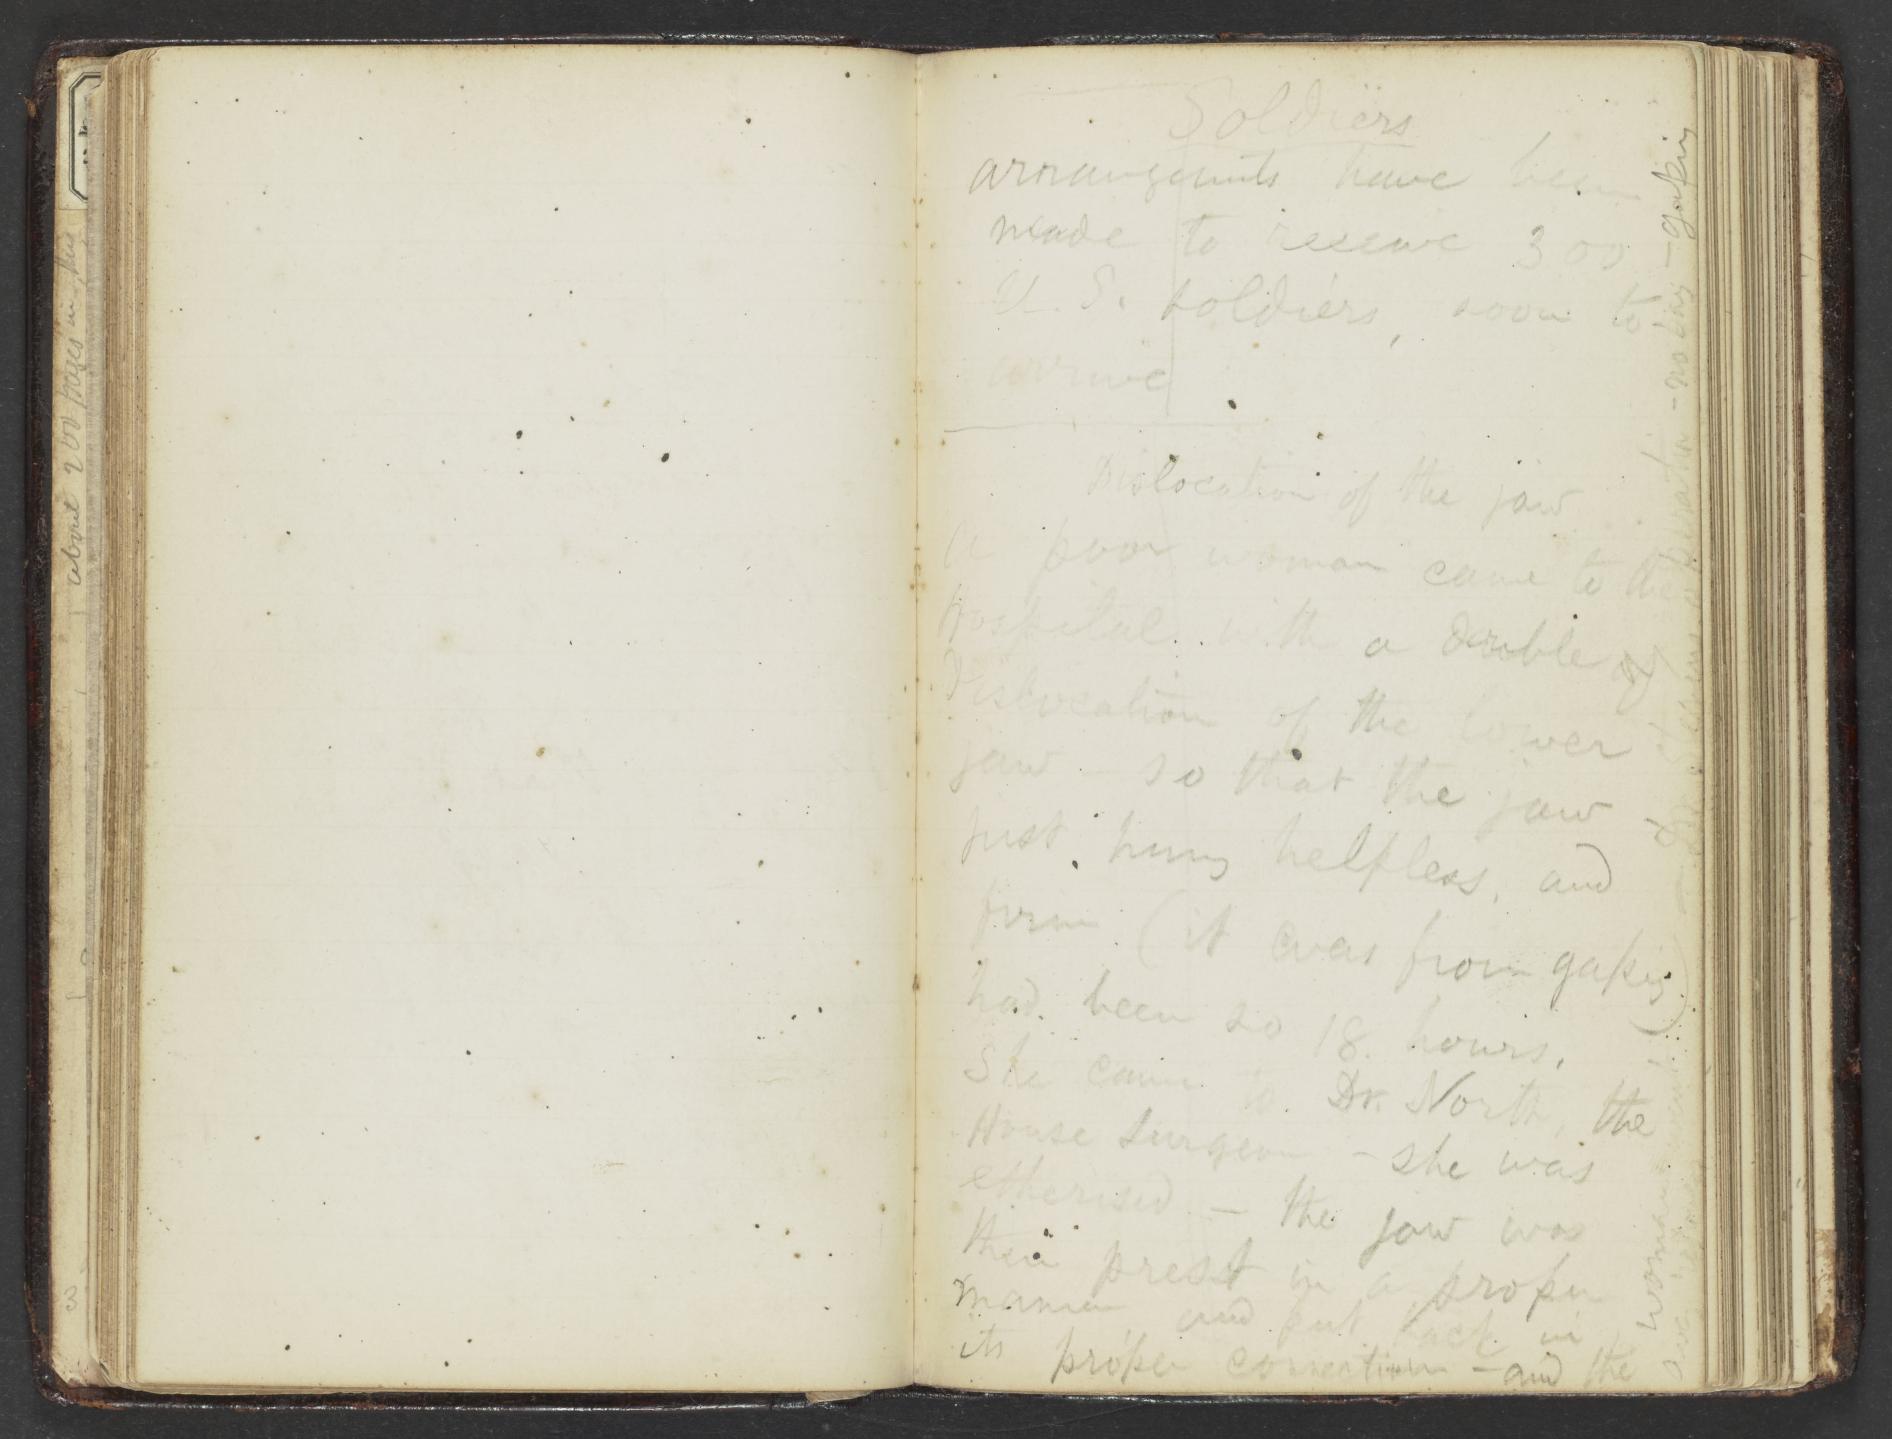 about 200 pages in this
Soldiers
arrangements have been
made to receive 300
U. S. soldiers, soon to
arrive
Dislocation of the jaw
A poor woman came to the
Hospital with a double
dislocation of the lower
jaw - so that the jaw
just hung helpless, and
firm (it was from gaping)
had been so 18 hours.
She came to Dr. North, the
House Surgeon - she was
etherised - the jaw was
then prest in a proper
manner and put back in
its proper connection - and the
woman
operation - no - gaping